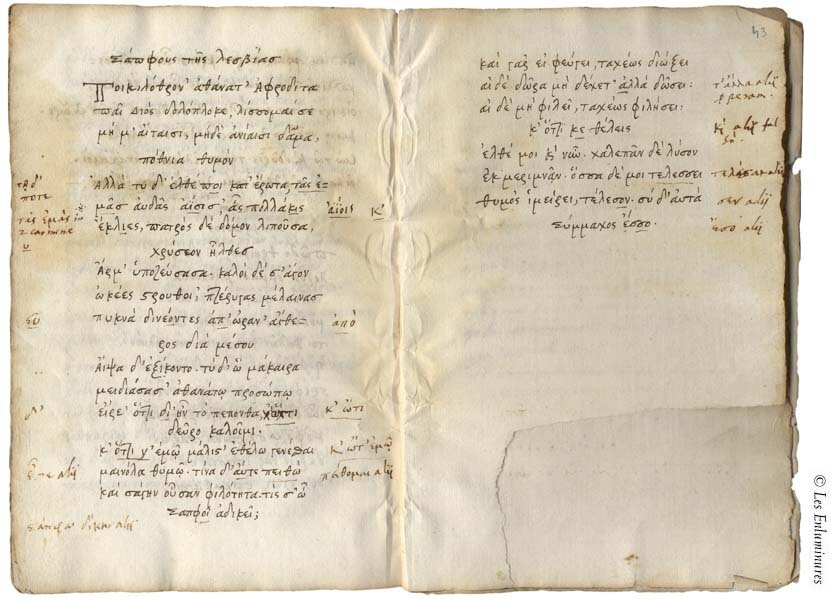 Σάπφους τῆς λεσβίας
Ποικιλόθρον' ἀθάνατ' Ἀφροδίτα
παῖ Διὸς δολόπλοκε, λίσσομαί σε
μή μ' ἄταισι, μηδὲ ἀνίαισι δάμνα,
πότνια θυμόν
Ἀλλὰ τυ δ' ἐλθέ ποι κατ' ἔρωτα, τᾶς ἐ-
μᾶς αὐδᾶς ἀΐοισ', ἇς πολλάκις
ἔκλυες, πατρὸς δὲ δόμον λιποῦσα,
χρύσεον ἦλθες
Ἅρμ' ὑποζεύξασα. καλοὶ δέ σ' ἆγον
ὠκέες στρουθοί, πτέρυγας μελαίνας
πυκνὰ δινέοντες ἀπ' ὠραν' αἰθέ-
ρος διὰ μέσου
Αἶψα δ' ἐξίκοντο. τὺ δ' ὦ μάκαιρα
μειδιάσασ' ἀθανάτῳ προσώπῳ
εἴρε' ὅττι δ' ἦν τὸ πέπονθα,
δεῦρο καλοῖμι.
κ' ὅττι γ' ἐμῷ μάλιστ' ἐθέλω γενέσθαι
μαινόλᾳ θυμῷ. τίνα δ' αὖτε πειθὼ
καὶ σαγην οὖσαν φιλότητα. τίς σ' ὦ
Σαπφοῖ ἀδικεῖ;
τὰς ἐμὰς
ποτε
ἀΐοις
Κ'
ἀπὸ
κ' ὤτι
κ' ὤτ' ἐμῷ
alij
alij
43
καὶ γὰρ εἰ φεύγει, ταχέως διώξει
αἰ δὲ δῶρα μὴ δέχετ' ἀλλὰ δώσει:
αἰ δὲ μὴ φιλεῖ, ταχέως φιλήσει:
κ' ὅττι κε θέλεις
ἐλθέ μοι κ' νῦν. χαλεπᾶν δὲ λῦσον
ἐκ μεριμνᾶν. ὅσσα δέ μοι τελέσσει
θυμὸς ἱμείρει, τέλεσον. σὺ δ' αὐτὰ
σύμμαχος ἔσσο.
alij
alij
alij
© Les Enluminures